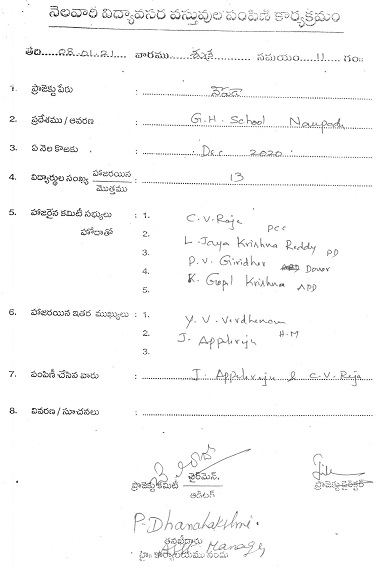 నెలవారీ విద్యావసర వస్తువుల పంపిణీ కార్యక్రమం
తేది 08.01.21 వారము శుక్ర సమయం 11 గం॥
1. ప్రాజెక్టు పేరు : నౌపడ
2. ప్రదేశము / ఆవరణ : G.H. School Naupada
3. ఏ నెల కొఱకు : Dec 2020
4. విద్యార్థుల సంఖ్య హాజరయిన / మొత్తము : 13
5. హాజరైన కమిటీ సభ్యులు : 1. C.V. Raju PCC
హోదాతో 2. L. Jaya Krishna Reddy PD
3. P.V. Giridhar Donor
4. K. Gopal Krishna APD
5.
6. హాజరయిన ఇతర ముఖ్యులు : 1. Y. V. Vardhanam
2. J. Appalaraju H.M
3.
7. పంపిణీ చేసిన వారు : J. Appalraju & C.V. Raju
8. వివరణ / సూచనలు :
ప్రాజెక్టు కమిటీ ఛైర్మెన్. ప్రాజెక్టు డైరెక్టర్
ఆడిటర్
P. Dhanalakshmi.
తనిఖీదారు
హై. కార్యాలయము నందు Manager